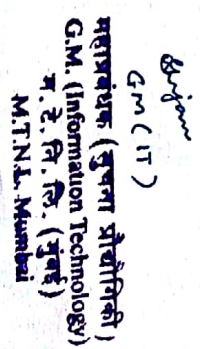 GM (IT)
महाप्रबंधक (सुचना प्रौद्योगिकी)
G.M. (Information Technology)
म. टे. नि. लि. (मुंबई)
M.T.N.L. Mumbai